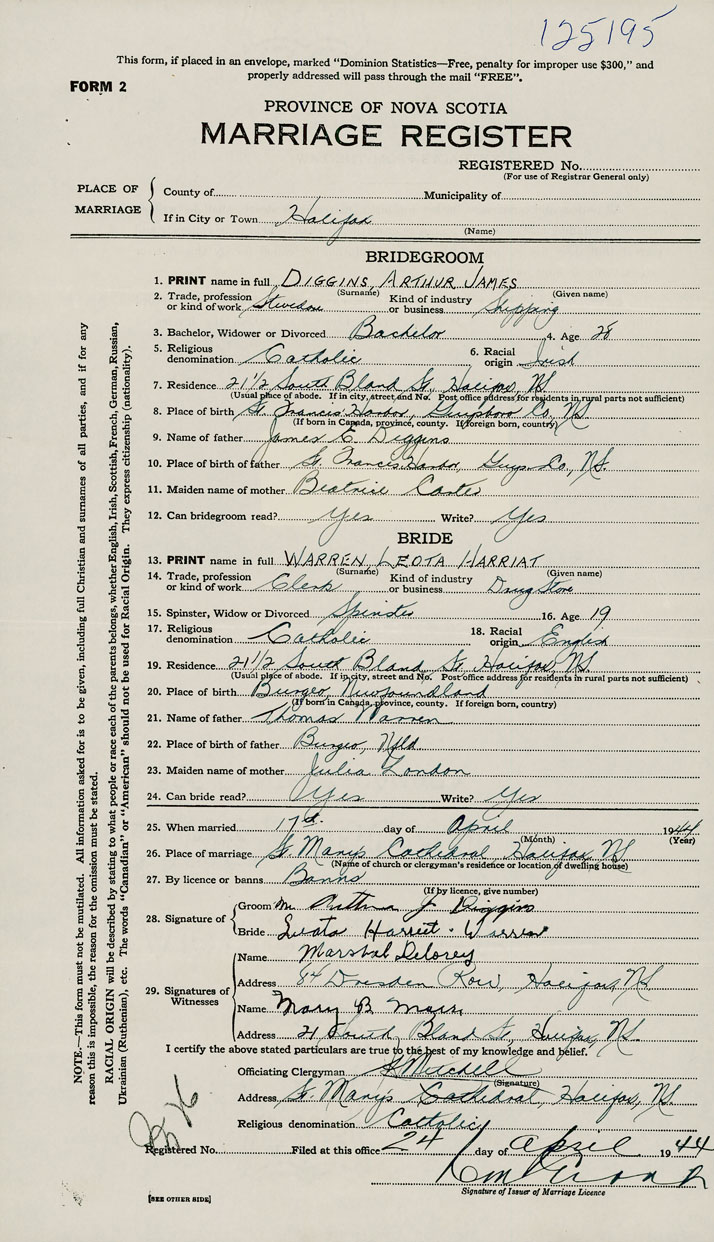 125195
This form, if placed in an envelope, marked "Dominion Statistics—Free, penalty for improper use $300," and
properly addressed will pass through the mail "FREE".
FORM 2
PROVINCE OF NOVA SCOTIA
MARRIAGE REGISTER
REGISTERED No.
(For use of Registrar General only)
PLACE OF MARRIAGE
County of Municipality of
If in City or Town Halifax
(Name)
BRIDEGROOM
1. PRINT name in full DIGGINS, ARTHUR JAMES
(Surname) (Given name)
2. Trade, profession or kind of work Stevedore Kind of industry or business Shipping
3. Bachelor, Widower or Divorced Bachelor 4. Age 28
5. Religious denomination Catholic 6. Racial origin Irish
7. Residence 21 1/2 South Bland St, Halifax, NS
(Usual place of abode. If in city, street and No. Post office address for residents in rural parts not sufficient)
8. Place of birth St. Francis Harbor, Guysboro Co, NS
(If born in Canada, province, county. If foreign born, country)
9. Name of father James E. Diggins
10. Place of birth of father St. Francis Harbor, Guys. Co., NS.
11. Maiden name of mother Beatrice
12. Can bridegroom read? Yes Write? Yes
BRIDE
13. PRINT name in full WARREN LEOTA HARRIAT
(Surname) (Given name)
14. Trade, profession or kind of work Clerk Kind of industry or business Drug Store
15. Spinster, Widow or Divorced Spinster 16. Age 19
17. Religious denomination Catholic 18. Racial origin English
19. Residence 21 1/2 South Bland St. Halifax, NS
(Usual place of abode. If in city, street and No. Post office address for residents in rural parts not sufficient)
20. Place of birth Burgeo, Newfoundland
(If born in Canada, province, county. If foreign born, country)
21. Name of father Thomas Warren
22. Place of birth of father Burgeo, Nfld.
23. Maiden name of mother Julia London
24. Can bride read? Yes Write? Yes
25. When married 17th day of April 1944
(Month) (Year)
26. Place of marriage St. Marys Cathedral Halifax, NS
(Name of church or clergyman's residence or location of dwelling house)
27. By licence or banns Banns
(If by licence, give number)
28. Signature of
Groom Mr. Arthur J Diggins
Bride Leota Harriet Warren
29. Signatures of Witnesses
Name Marshal Delorey
Address 84 Dresden Row, Halifax, NS
Name Mary B
Address 21 South Bland St, Halifax, NS.
I certify the above stated particulars are true to the best of my knowledge and belief.
Officiating Clergyman Mitchell
(Signature)
Address St. Marys Cathedral, Halifax, NS
Religious denomination Catholic
Registered No. Filed at this office 24 day of April 1944
Signature of Issuer of Marriage Licence
[SEE OTHER SIDE]
NOTE.—This form must not be mutilated. All information asked for is to be given, including full Christian and surnames of all parties, and if for any
reason this is impossible, the reason for the omission must be stated.
RACIAL ORIGIN will be described by stating to what people or race each of the parents belongs, whether English, Irish, Scottish, French, German, Russian,
Ukrainian (Ruthenian), etc. The words "Canadian" or "American" should not be used for Racial Origin. They express citizenship (nationality).